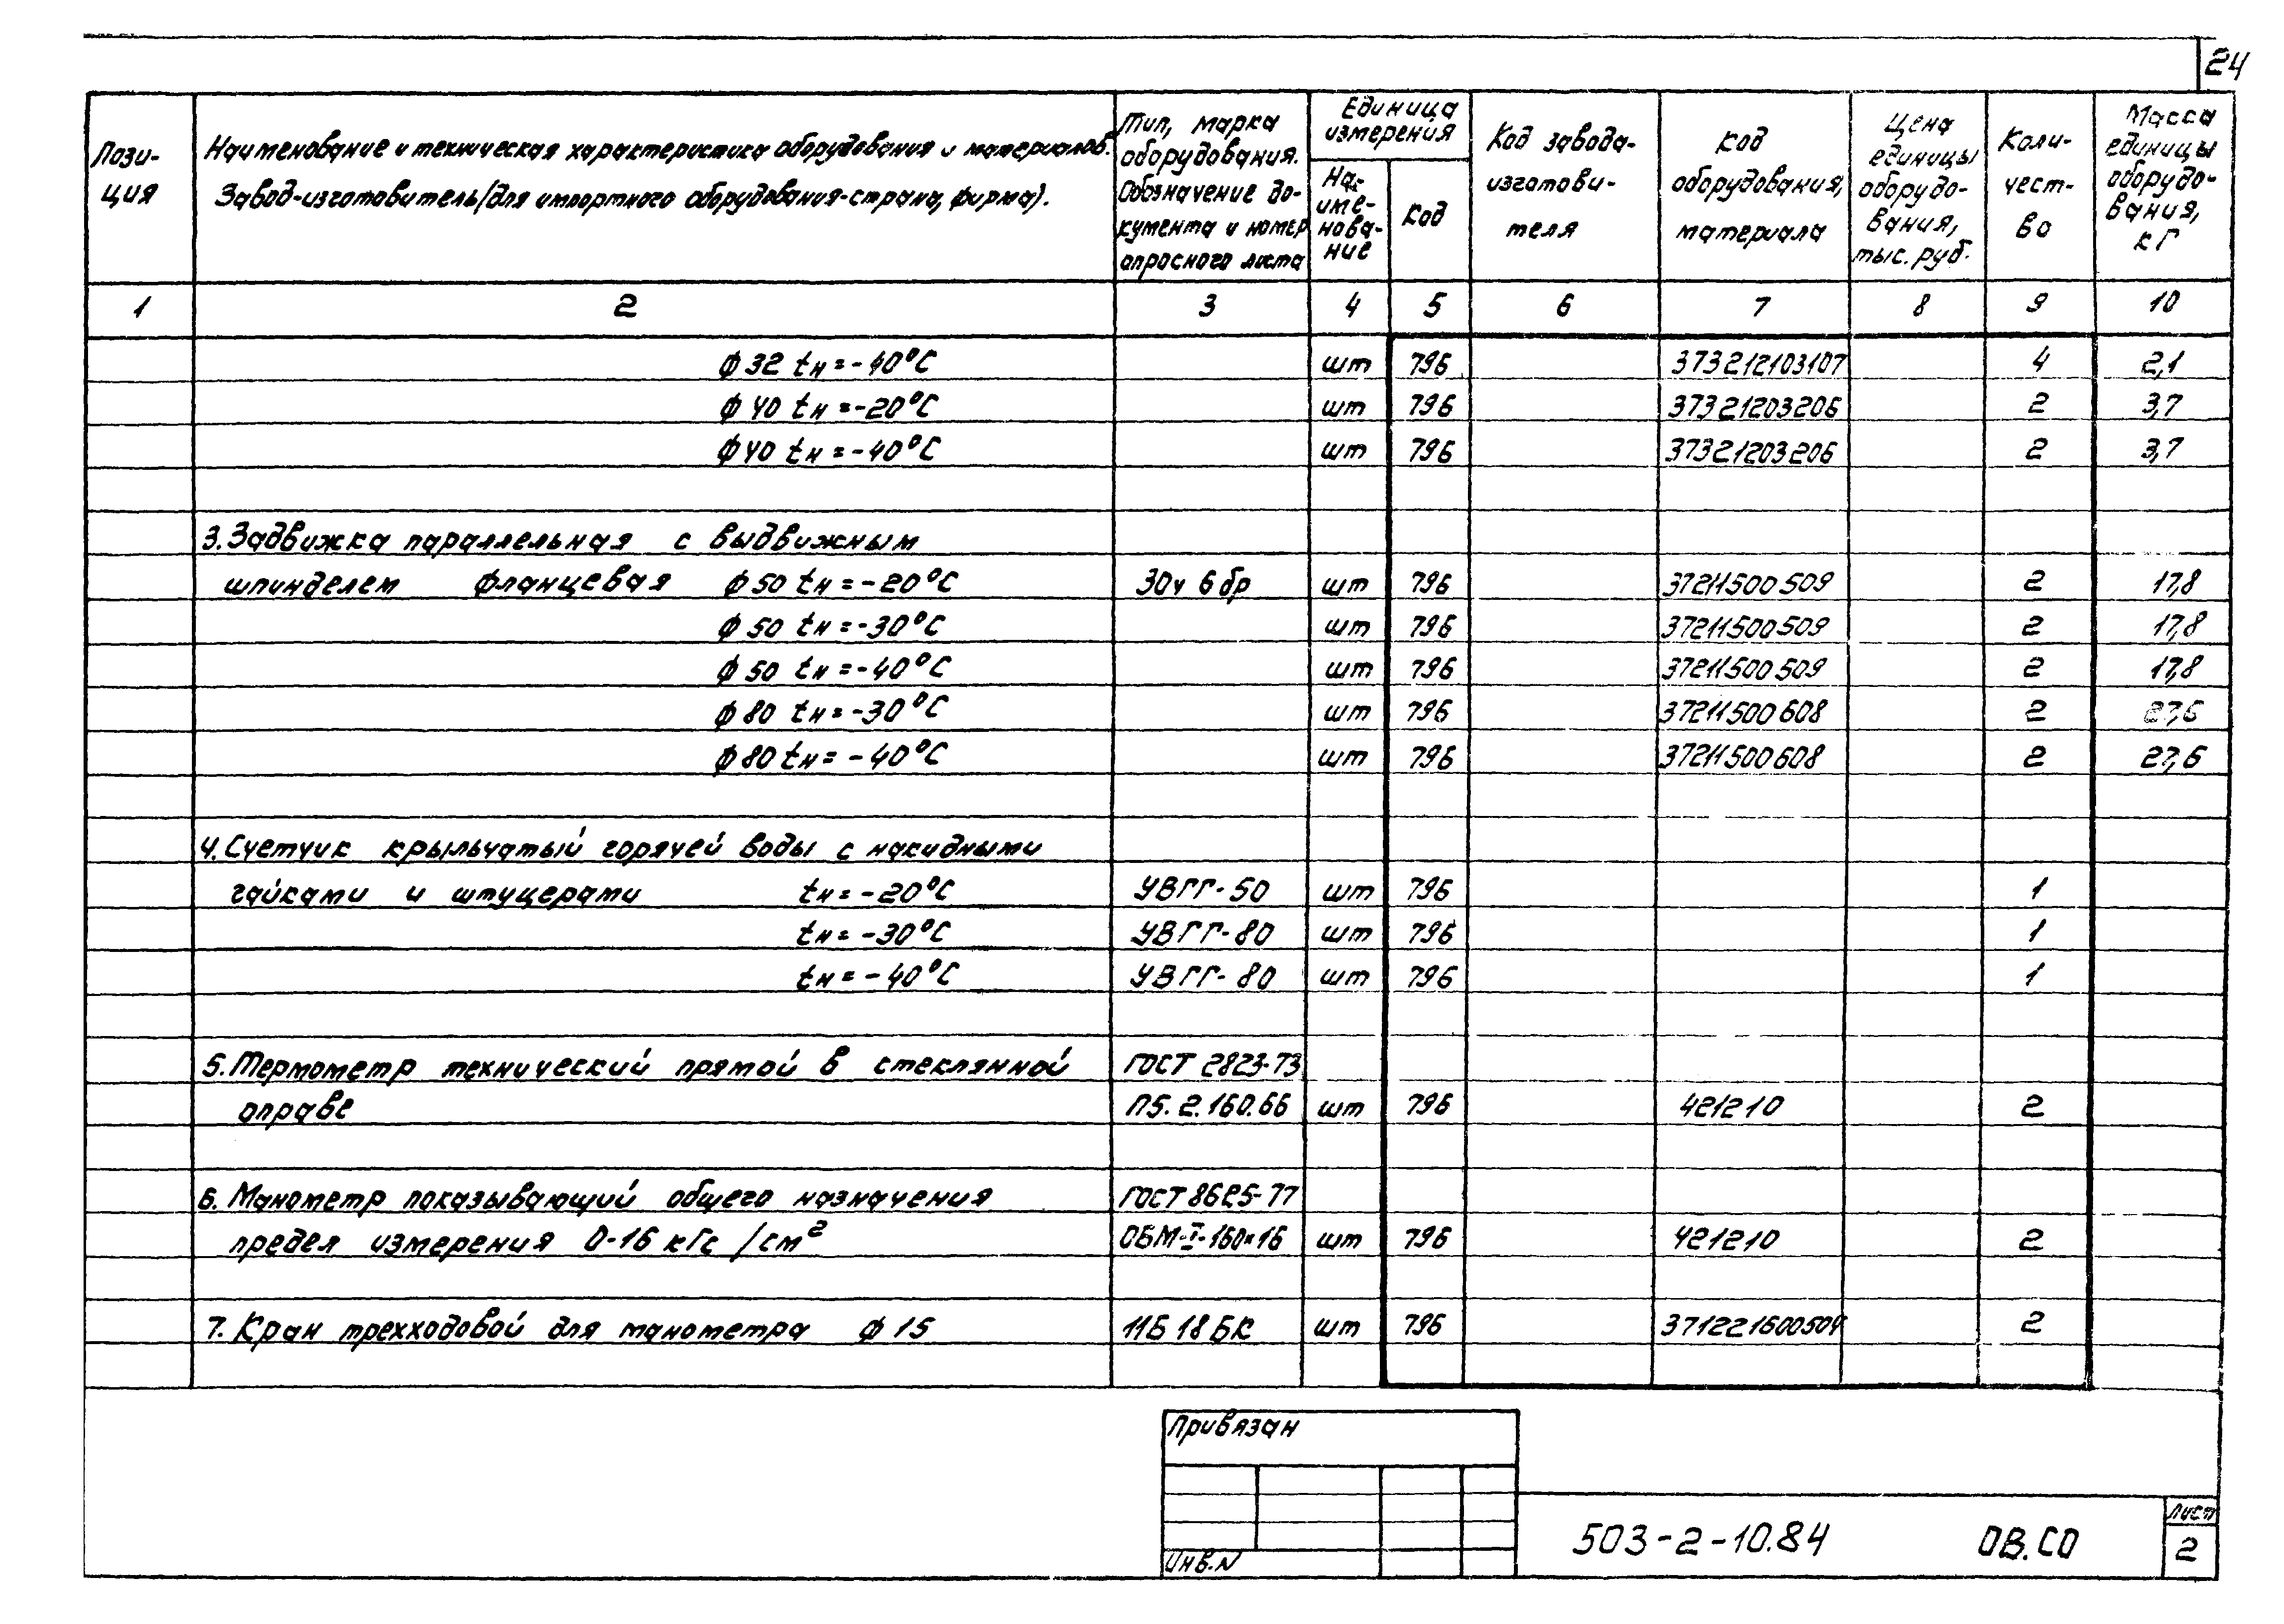 24
Пози-
ция
Наименование и техническая характеристика оборудования и материалов.
Завод-изготовитель (для импортного оборудования-страна, фирма).
Тип, марка
оборудования.
Обозначение до-
кумента и номер
опросного листа
Единица
измерения
На-
име-
нова-
ние
Код
Код завода-
изготови-
теля
Код
оборудования,
материала
Цена
единицы
оборудо-
вания,
тыс. руб.
Коли-
чест-
во
Масса
единицы
оборудо-
вания,
кг
1 2 3 4 5 6 7 8 9 10
ф 32 tн = -40°C шт 796 373212103107 4 2,1
ф 40 tн = -20°C шт 796 37321203206 2 3,7
ф 40 tн = -40°C шт 796 37321203206 2 3,7
3. Задвижка параллельная с выдвижным
шпинделем фланцевая ф 50 tн = -20°C 30ч 6 бр шт 796 37211500509 2 17,8
ф 50 tн = -30°C шт 796 37211500509 2 17,8
ф 50 tн = -40°C шт 796 37211500509 2 17,8
ф 80 tн = -30°C шт 796 37211500608 2 27,6
ф 80 tн = -40°C шт 796 37211500608 2 27,6
4. Счетчик крыльчатый горячей воды с накидными
гайками и штуцерами tн = -20°C УВГГ-50 шт 796 1
tн = -30°C УВГГ-80 шт 796 1
tн = -40°C УВГГ-80 шт 796 1
5. Термометр технический прямой в стеклянной ГОСТ 2823-73
оправе П5.2.160.66 шт 796 421210 2
6. Манометр показывающий общего назначения ГОСТ 8625-77
предел измерения 0-16 кгс/см² ОБМ-I-160×16 шт 796 421210 2
7. Кран трехходовой для манометра ф 15 11Б 18 БК шт 796 371221600504 2
Привязан
Инв. N
503-2-10.84 ОВ.СО
Лист
2